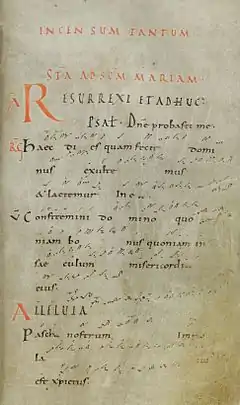 INCENSUM TANTUM
STA AD SCM MARIAM
A RESURREXI ET ADHUC
PSAL Dne probasti me
Haec di es quam fecit domi
nus exulte mus
& laetemur In e
V Confitemini do mino quo
niam bo nus quoniam in
sae culum misericordi
eius.
ALLELUIA
Pascha nostrum Im
la
est xpistus.